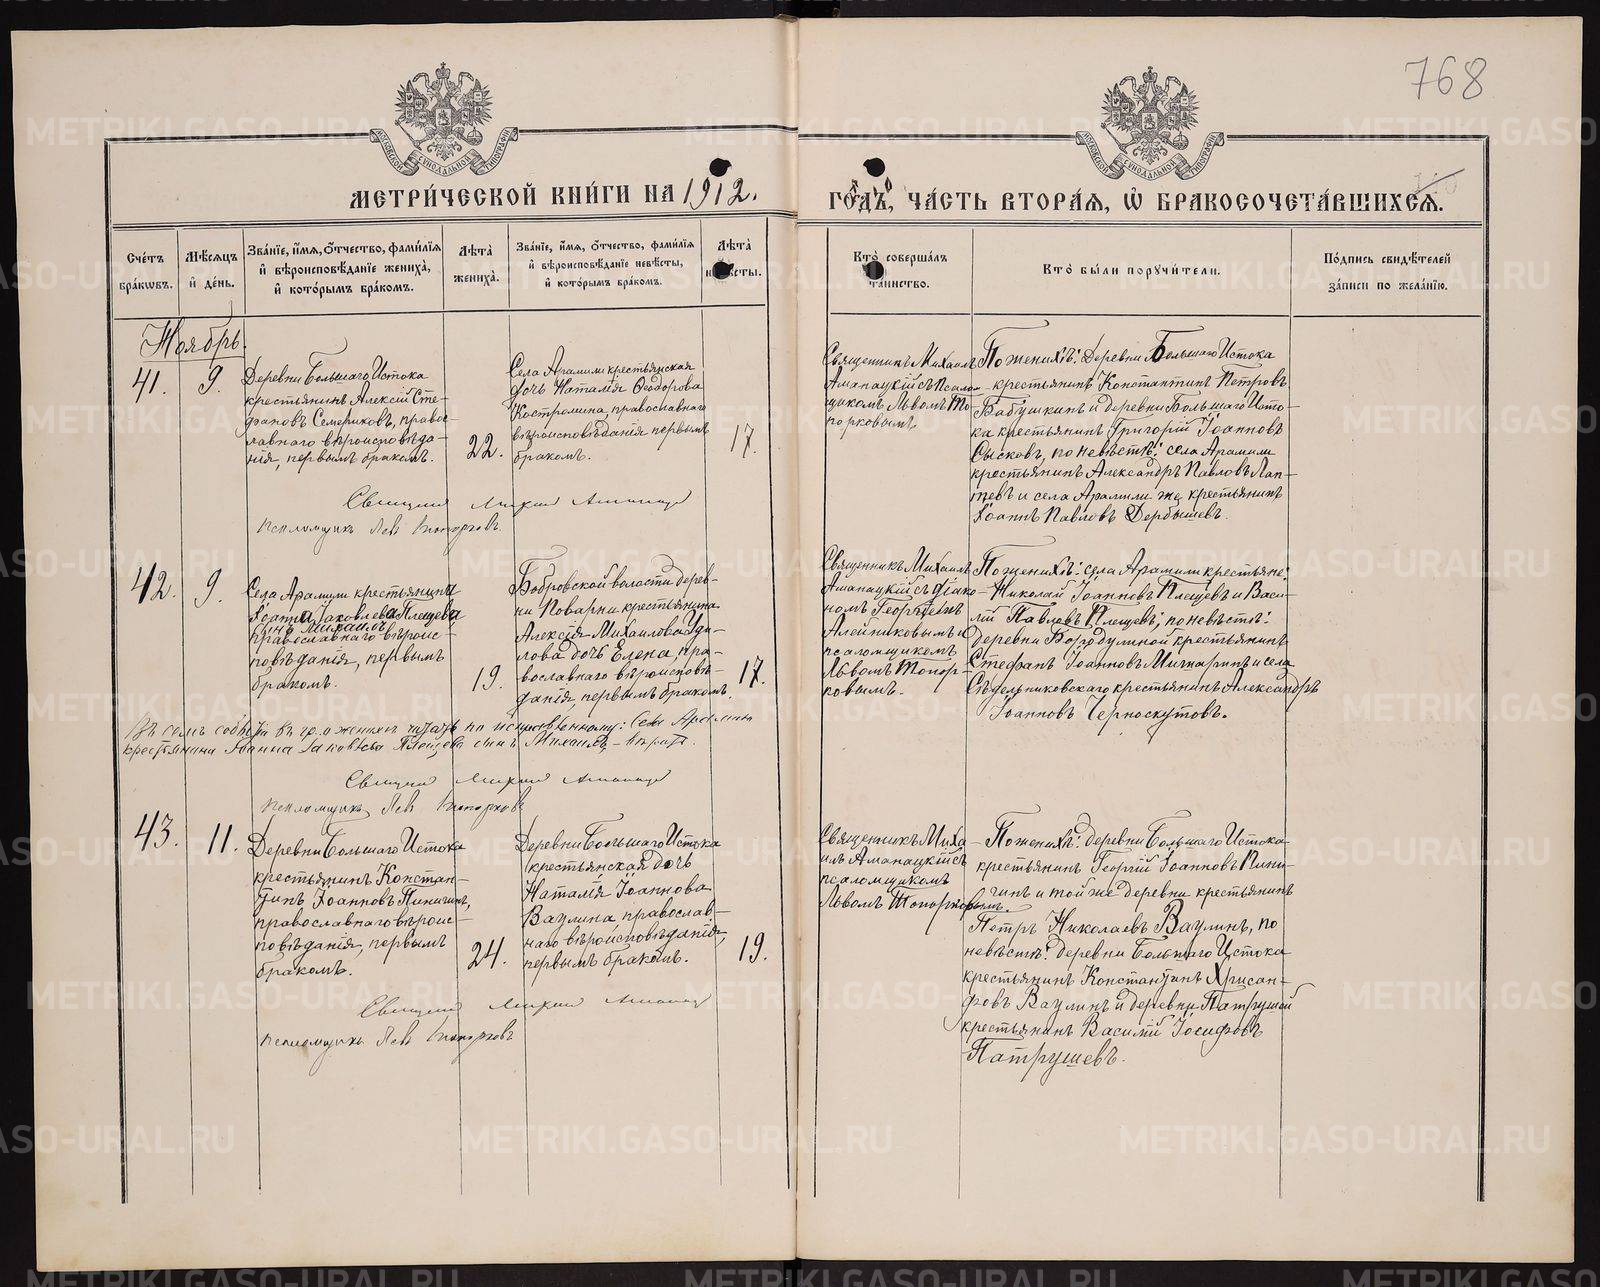 768
МОСКОВСКОЙ СИНОДАЛЬНОЙ ТИПОГРАФІИ
МОСКОВСКОЙ СИНОДАЛЬНОЙ ТИПОГРАФІИ
МЕТРИ́ЧЕСКОЙ КНИ́ГИ НА 1912.
ГО́ДЪ, ЧА́СТЬ ВТОРА́Я, Ѡ БРАКОСОЧЕТА́ВШИХСѦ.
Сче́тъ бра́кѡвъ.
Мѣ́сяцъ и҆ де́нь.
Зва́нїе, и҆́мѧ, ѻ҆́тчество, фами́лїѧ
и҆ вѣроисповѣ́данїе жениха̀,
и҆ кото́рымъ бра́комъ.
Лѣ́та жениха̀.
Зва́нїе, и҆́мѧ, ѻ҆́тчество, фами́лїѧ
и҆ вѣроисповѣ́данїе невѣ́сты,
и҆ кото́рымъ бра́комъ.
Лѣ́та невѣ́сты.
Кто̀ соверша́лъ
та́инство.
Кто̀ бы́ли порꙋчи́тели.
По́дпись свидѣ́телей
за́писи по жела́нїю.
Ноябрь.
41.
9.
Деревни Большаго Истока
крестьянинъ Алексій Сте-
фановъ Семериковъ, право-
славнаго вѣроисповѣда-
нія, первымъ бракомъ.
22.
Села Арамили крестьянская
дочь Наталія Ѳеодорова
Костромина, православнаго
вѣроисповѣданія первымъ
бракомъ.
17.
Священникъ Михаилъ
Аманацкій съ псалом-
щикомъ Львомъ То-
порковымъ.
По женихѣ: деревни Большаго Истока
крестьянинъ Константинъ Петровъ
Бабушкинъ и деревни Большаго Исто-
ка крестьянинъ Григорій Іоанновъ
Сысковъ, по невѣстѣ: села Арамили
крестьянинъ Александръ Павловъ Лап-
тевъ и села Арамили же крестьянинъ
Іоаннъ Павловъ Дербышевъ.
Священникъ Михаилъ Аманацкій
Псаломщикъ Левъ Топорковъ.
42.
9.
Села Арамили крестьянина
Іоанна Іаковлева Плещева
сынъ Михаилъ
православнаго вѣроис-
повѣданія, первымъ
бракомъ.
19.
Бобровской волости дерев-
ни Поварни крестьянина
Алексія Михаилова Уди-
лова дочь Елена, пра-
вославнаго вѣроисповѣ-
данія, первымъ бракомъ.
17.
Священникъ Михаилъ
Аманацкій съ діако-
номъ Георгіемъ
Алейниковымъ и
псаломщикомъ
Львомъ Топор-
ковымъ.
По женихѣ: села Арамили крестьяне:
Николай Іоанновъ Плещевъ и Васи-
лій Павловъ Плещевъ, по невѣстѣ:
деревни Бородулиной крестьянинъ
Стефанъ Іоанновъ Мичкаринъ и села
Сѣдельниковскаго крестьянинъ Александръ
Іоанновъ Черноскутовъ.
Въ семъ событіи въ гр. о женихѣ читать по исправленному: Села Арамили
крестьянина Іоанна Іаковлева Плещева сынъ Михаилъ – вѣрить.
Священникъ Михаилъ Аманацкій
Псаломщикъ Левъ Топорковъ
43.
11.
Деревни Большаго Истока
крестьянинъ Констан-
тинъ Іоанновъ Пинигинъ,
православнаго вѣроис-
повѣданія, первымъ
бракомъ.
24.
Деревни Большаго Истока
крестьянская дочь
Наталія Іоаннова
Ваулина православ-
наго вѣроисповѣданія,
первымъ бракомъ.
19.
Священникъ Миха-
илъ Аманацкій съ
псаломщикомъ
Львомъ Топорковымъ.
По женихѣ: деревни Большаго Истока
крестьянинъ Георгій Іоанновъ Пини-
гинъ и той же деревни крестьянинъ
Петръ Николаевъ Ваулинъ, по
невѣстѣ: деревни Большаго Истока
крестьянинъ Константинъ Хрисан-
фовъ Ваулинъ и деревни Патрушей
крестьянинъ Василій Іосифовъ
Патрушевъ.
Священникъ Михаилъ Аманацкій
Псаломщикъ Левъ Топорковъ